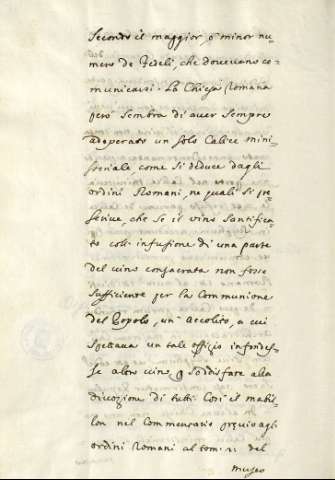 Secondo il maggior, o minor nu-
mero de Fedeli, che dovevano co-
municarsi. La Chiesa Romana
però sembra di aver sempre
adoperato un solo Calice mini-
steriale, come si deduce dagli
ordini Romani ne quali si pre-
scrive, che se il vino santifica-
to coll' infusione di una parte
del vino consacrata non fosse
sufficiente per la Communione
del Popolo, un Accolito, a cui
spettava un tale offizio infondes-
se altro vino, p soddisfare alla
divozione di tutti. Così il Mabil-
lon nel Commentario previo agli
ordini Romani al tom. II. del
Museo